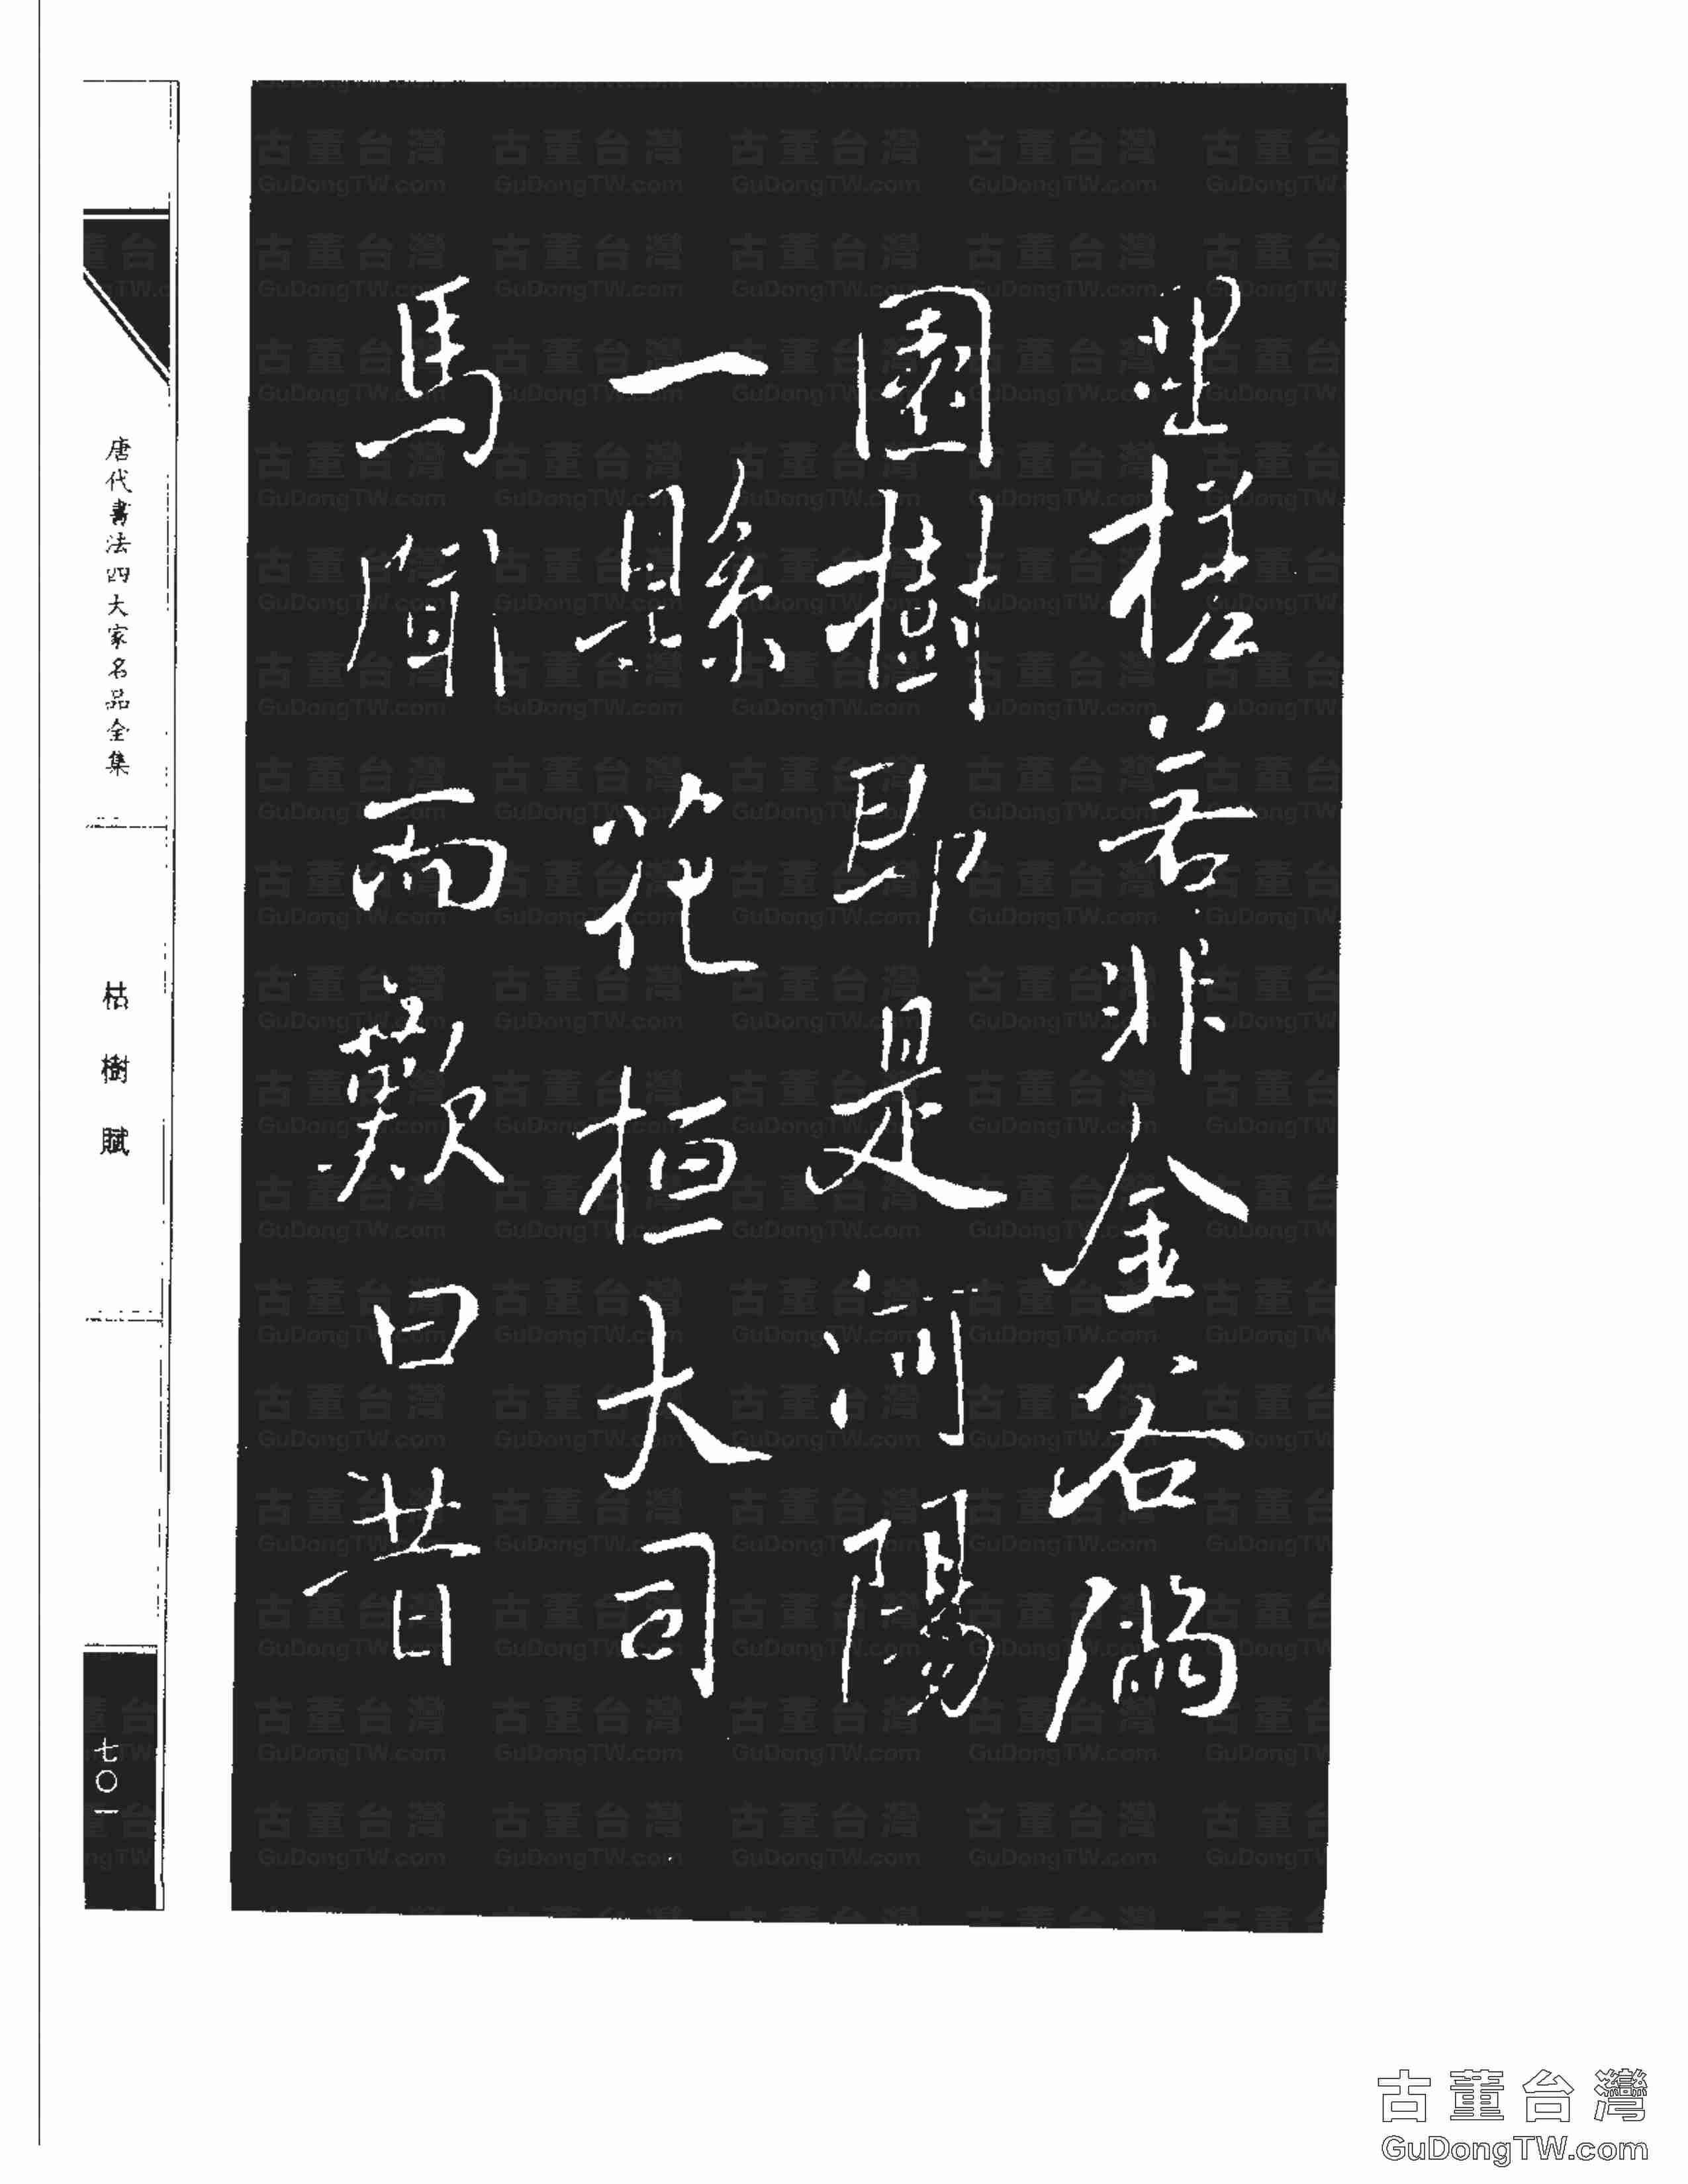 里槎若非金谷滿
園樹即是河陽
一縣花桓大司
馬聞而歎曰昔
唐代書法四大家名品全集
枯樹賦
七〇一
古董台灣
GuDongTW.com